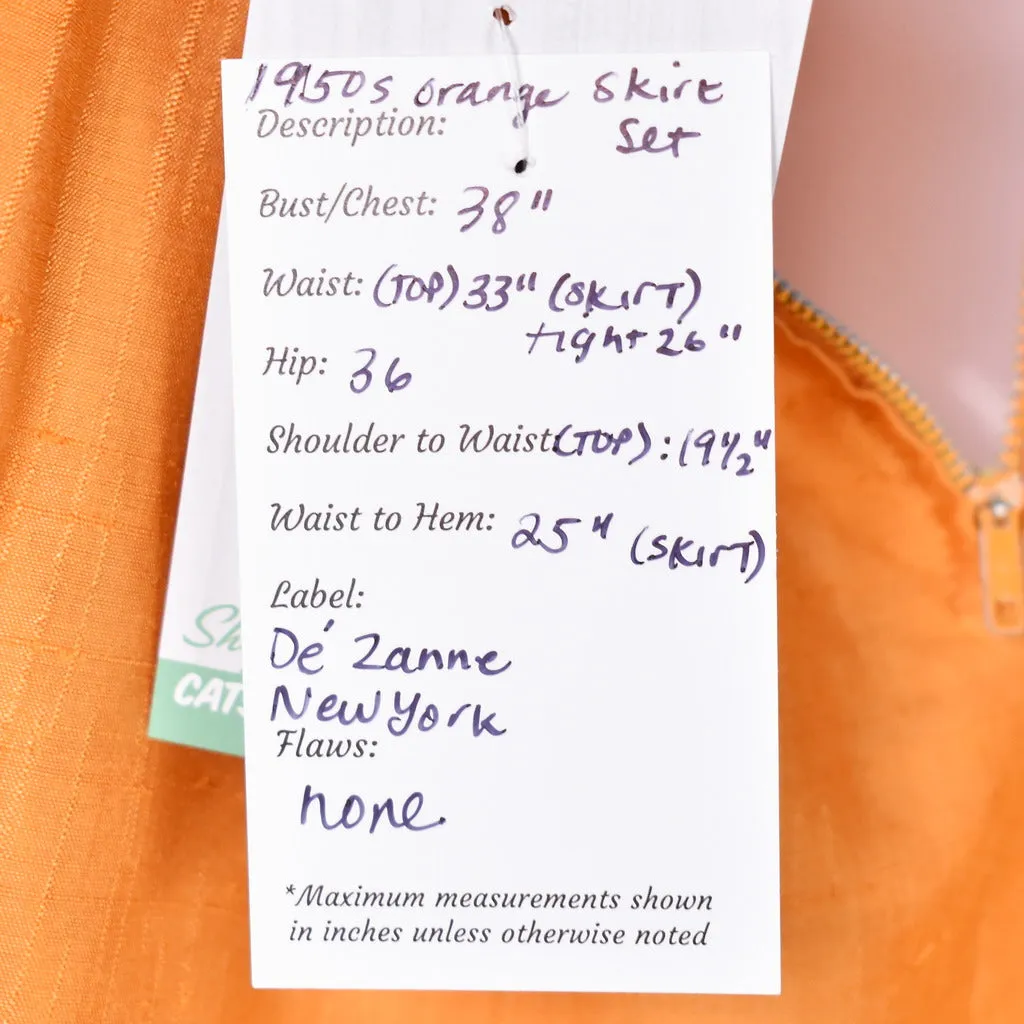 1950s orange Skirt
Description: Set
Bust/Chest: 38"
Waist: (TOP) 33" (SKIRT)
tight 26"
Hip: 36
Shoulder to Waist: (TOP) : 19 1/2"
Waist to Hem: 25" (SKIRT)
Label:
Dé Zanne
New York
Flaws:
none.
*Maximum measurements shown
in inches unless otherwise noted
Sh
CATS